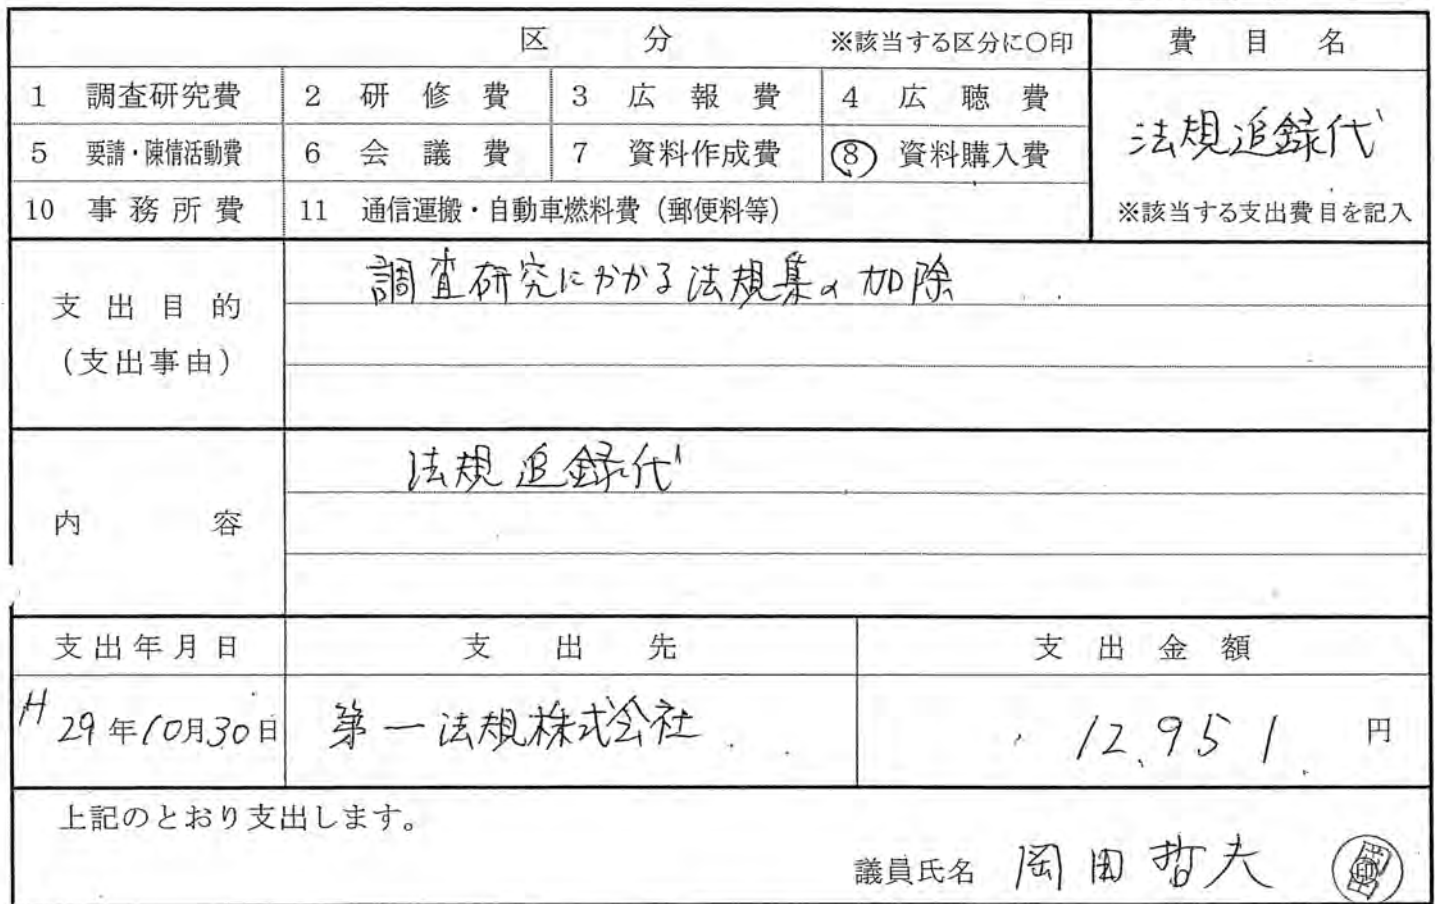 区分 ※該当する区分に○印 費目名
1 調査研究費 2 研修費 3 広報費 4 広聴費
法規追録代
5 要請・陳情活動費 6 会議費 7 資料作成費 8 資料購入費
10 事務所費 11 通信運搬・自動車燃料費（郵便料等） ※該当する支出費目を記入
調査研究にかかる法規集の加除
支出目的
（支出事由）
法規追録代
内容
支出年月日 支出先 支出金額
H29年10月30日 第一法規株式会社 12,951 円
上記のとおり支出します。
議員氏名 岡田哲夫